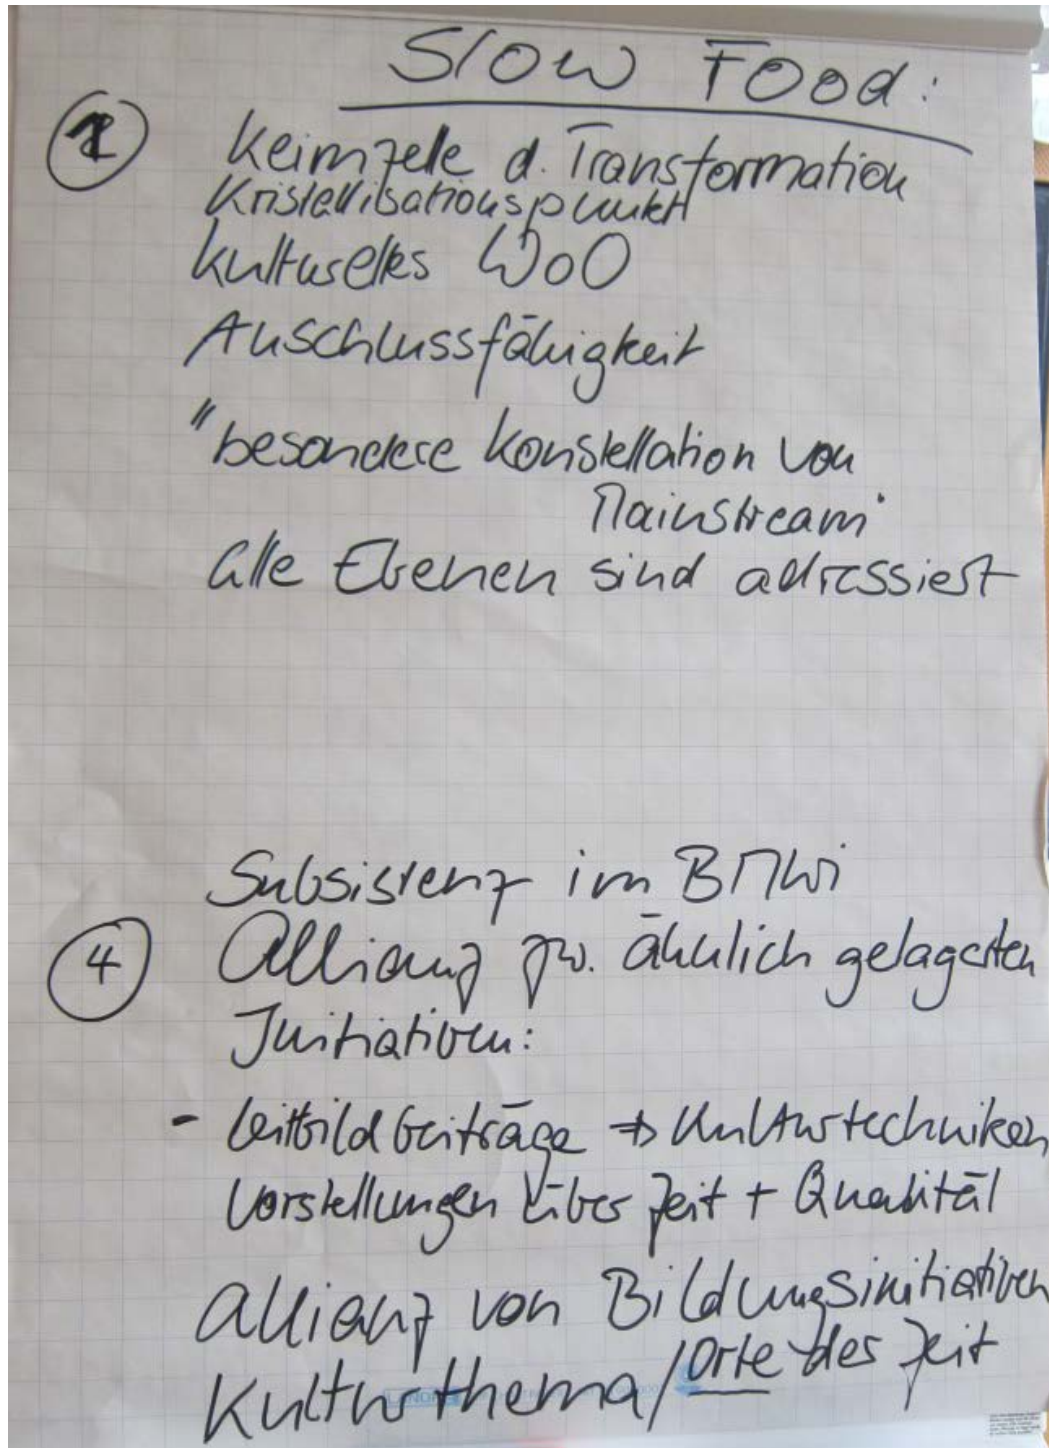 Slow Food:
1 Keimzelle d. Transformation
Kristallisationspunkt
kulturelles WoO
Anschlussfähigkeit
"besondere Konstellation von
Mainstream"
alle Ebenen sind adressiert
Subsistenz im BMWi
4 Allianz zw. ähnlich gelagerten
Initiativen:
- Leitbildbeiträge ⇒ Kulturtechniken
Vorstellungen über Zeit + Qualität
Allianz von Bildungsinitiativen
Kulturthema / Orte der Zeit